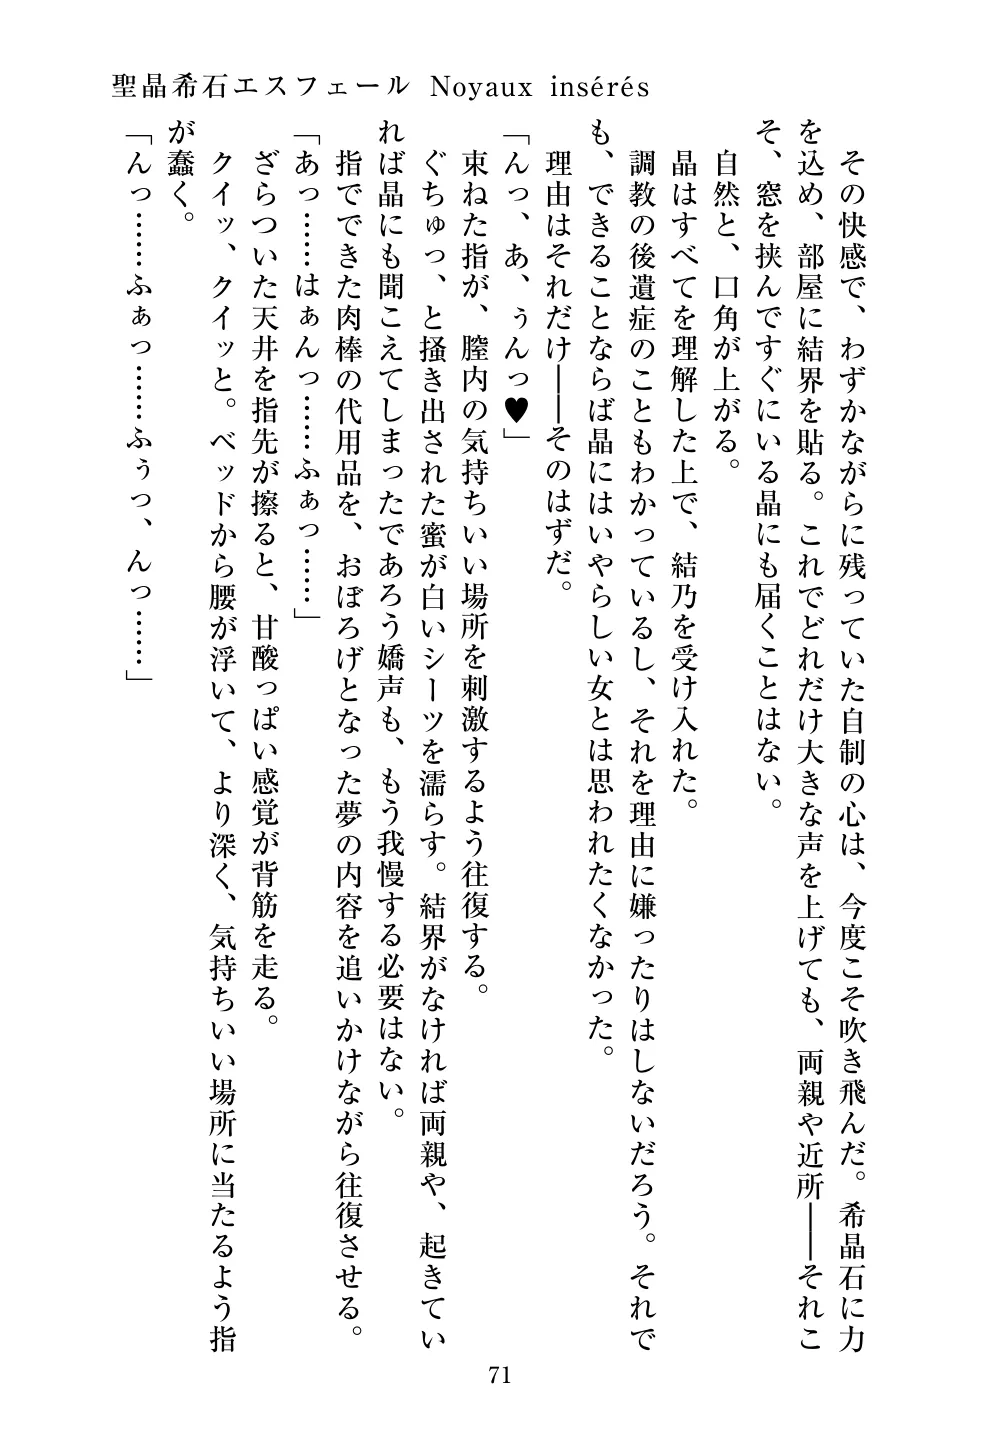 聖晶希石エスフェール Noyaux insérés
　その快感で、わずかながらに残っていた自制の心は、今度こそ吹き飛んだ。希晶石に力
を込め、部屋に結界を貼る。これでどれだけ大きな声を上げても、両親や近所――それこ
そ、窓を挟んですぐにいる晶にも届くことはない。
　自然と、口角が上がる。
　晶はすべてを理解した上で、結乃を受け入れた。
　調教の後遺症のこともわかっているし、それを理由に嫌ったりはしないだろう。それで
も、できることならば晶にはいやらしい女とは思われたくなかった。
　理由はそれだけ――そのはずだ。
「んっ、あ、ぅんっ♥」
　束ねた指が、膣内の気持ちいい場所を刺激するよう往復する。
　ぐちゅっ、と掻き出された蜜が白いシーツを濡らす。結界がなければ両親や、起きてい
れば晶にも聞こえてしまったであろう嬌声も、もう我慢する必要はない。
　指でできた肉棒の代用品を、おぼろげとなった夢の内容を追いかけながら往復させる。
「あっ……はぁんっ……ふぁっ……」
　ざらついた天井を指先が擦ると、甘酸っぱい感覚が背筋を走る。
　クイッ、クイッと。ベッドから腰が浮いて、より深く、気持ちいい場所に当たるよう指
が蠢く。
「んっ……ふぁっ……ふぅっ、んっ……」
71